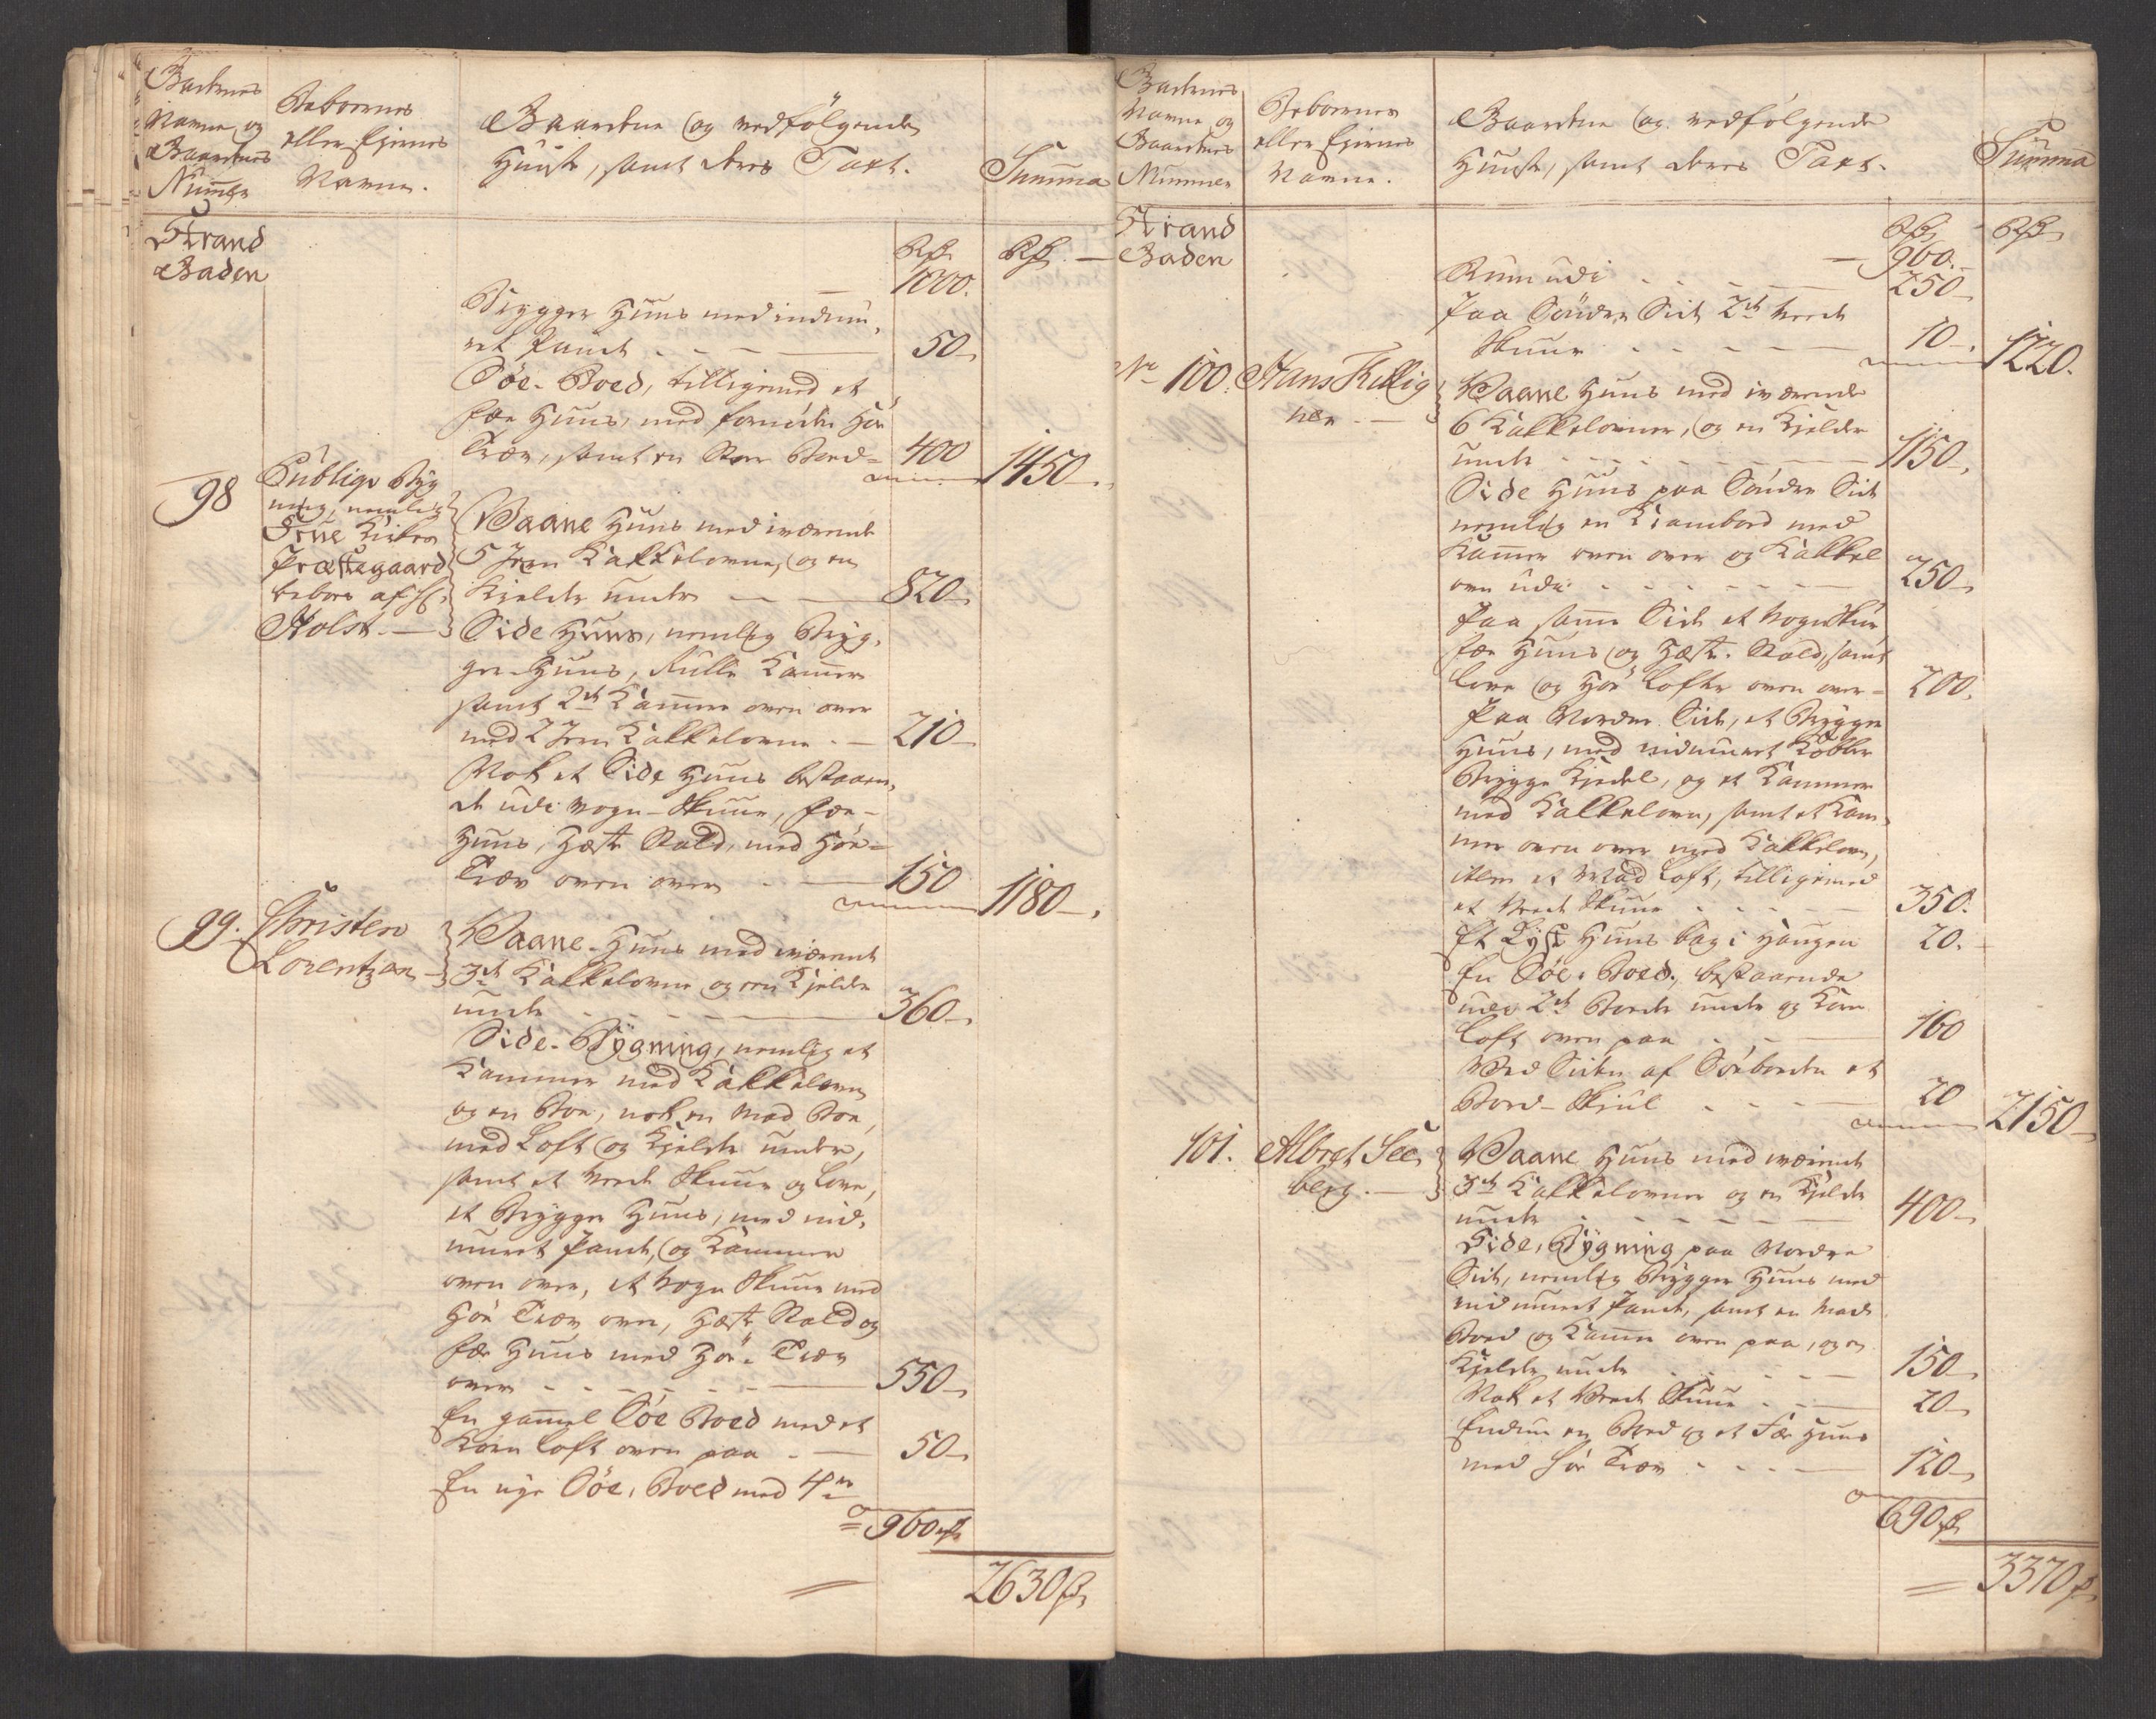 Gadernes
Navne og
Gaardenes
Nummer
Beboernes
eller Ejernes
Navne.
Gaardene og medfølgende
Huuse, samt deres Taxt.
Summa
Strand
Gaden
Rd
Rd
1000.
Brygger Huus med indmu-
ret Pande 50
Søe-Boed, tilligemed et
Fæe Huus, med fornøden Høe
Træv, samt en Boed 400
1450
98
Publiqve Byg
ning, nemlig
Frue Kirkes
Præstegaard
bebores af Hr.
Holst.
Vaane Huus med iværende
5 Jern Kakkelovne, og en
Kjelder under 820
Side Huus, nemlig Bryg-
ger-Huus, Rulle Kammer
samt 2de Kammer oven over
med 2 Jern Kakkelovne 210
Nok et Side Huus bestaaen-
de udi Vogn-Skuur, Fæe-
Huus, Hæste Stald, med Høe-
Træv oven over 150
1180
99.
Christen
Lorentzen
Vaane-Huus med iværende
3de Kakkelovne og en Kjelder
under 360
Side-Bygning, nemlig et
Kammer med Kakkelovn
og en Boe, nok en Mad Boe,
med Loft og Kjelder under,
samt et Vede Skuur og Love,
et Brygger Huus, med ind-
muret Pande, og Kammer
oven over, et Vogn Skuur med
Høe Træv over, Hæste Stald og
Fæe Huus med Høe-Træv
over 550
En gammel Søe Boed med et
Korn Loft oven paa 50
En nye Søe-Boed med 4re
960 rd
2630 rd
Gadernes
Navne og
Gaardenes
Nummer
Beboernes
eller Ejernes
Navne.
Gaardene og medfølgende
Huuse, samt deres Taxt.
Summa
Strand
Gaden
Rd
Rd
960.
Rum udi 250
Paa Søndre Side 2de Veede
Skuur 10
1220.
No 100.
Hans Killig
Vaane Huus med iværende
6 Kakkelovner, og en Kjelder
under 1150
Side Huus paa Søndre Side
nemlig en Kramboed med
Kammer oven over og Kakkel
ovn udi 250
Paa samme Side et Vogn Skur,
Fæe Huus og Hæste-Stald, samt
Love og Høe Lofter oven over 200.
Paa Nordre Side, et Brygger
Huus, med indmuret Kobber
Brygge Kjedel, og et Kammer
med Kakkelovn, samt et Kam-
mer oven over med Kakkelovn,
item et Mad Loft, tilligemed
et Veed Skuur 350.
Et Lyst Huus bag i Haugen 20.
En Søe-Boed, bestaaende
udi 2de Boeder under og Korn
Loft oven paa 160
Ved Siden af Søeboeden et
Bord-Skjul 20
2150
101.
Albret See-
berg.
Vaane Huus med iværende
3de Kakkelovner og en Kjelder
under 400
Side, Bygning paa Nordre
Side, nemlig Brygger Huus med
indmuret Pande, samt en Mad
Boed og Kammer oven paa, og en
Kjelder under 150
Nok et Veede Skuur 20
Endnu en Boed og et Fæe Huus
med Høe Træv 120
690 rd
3370 rd